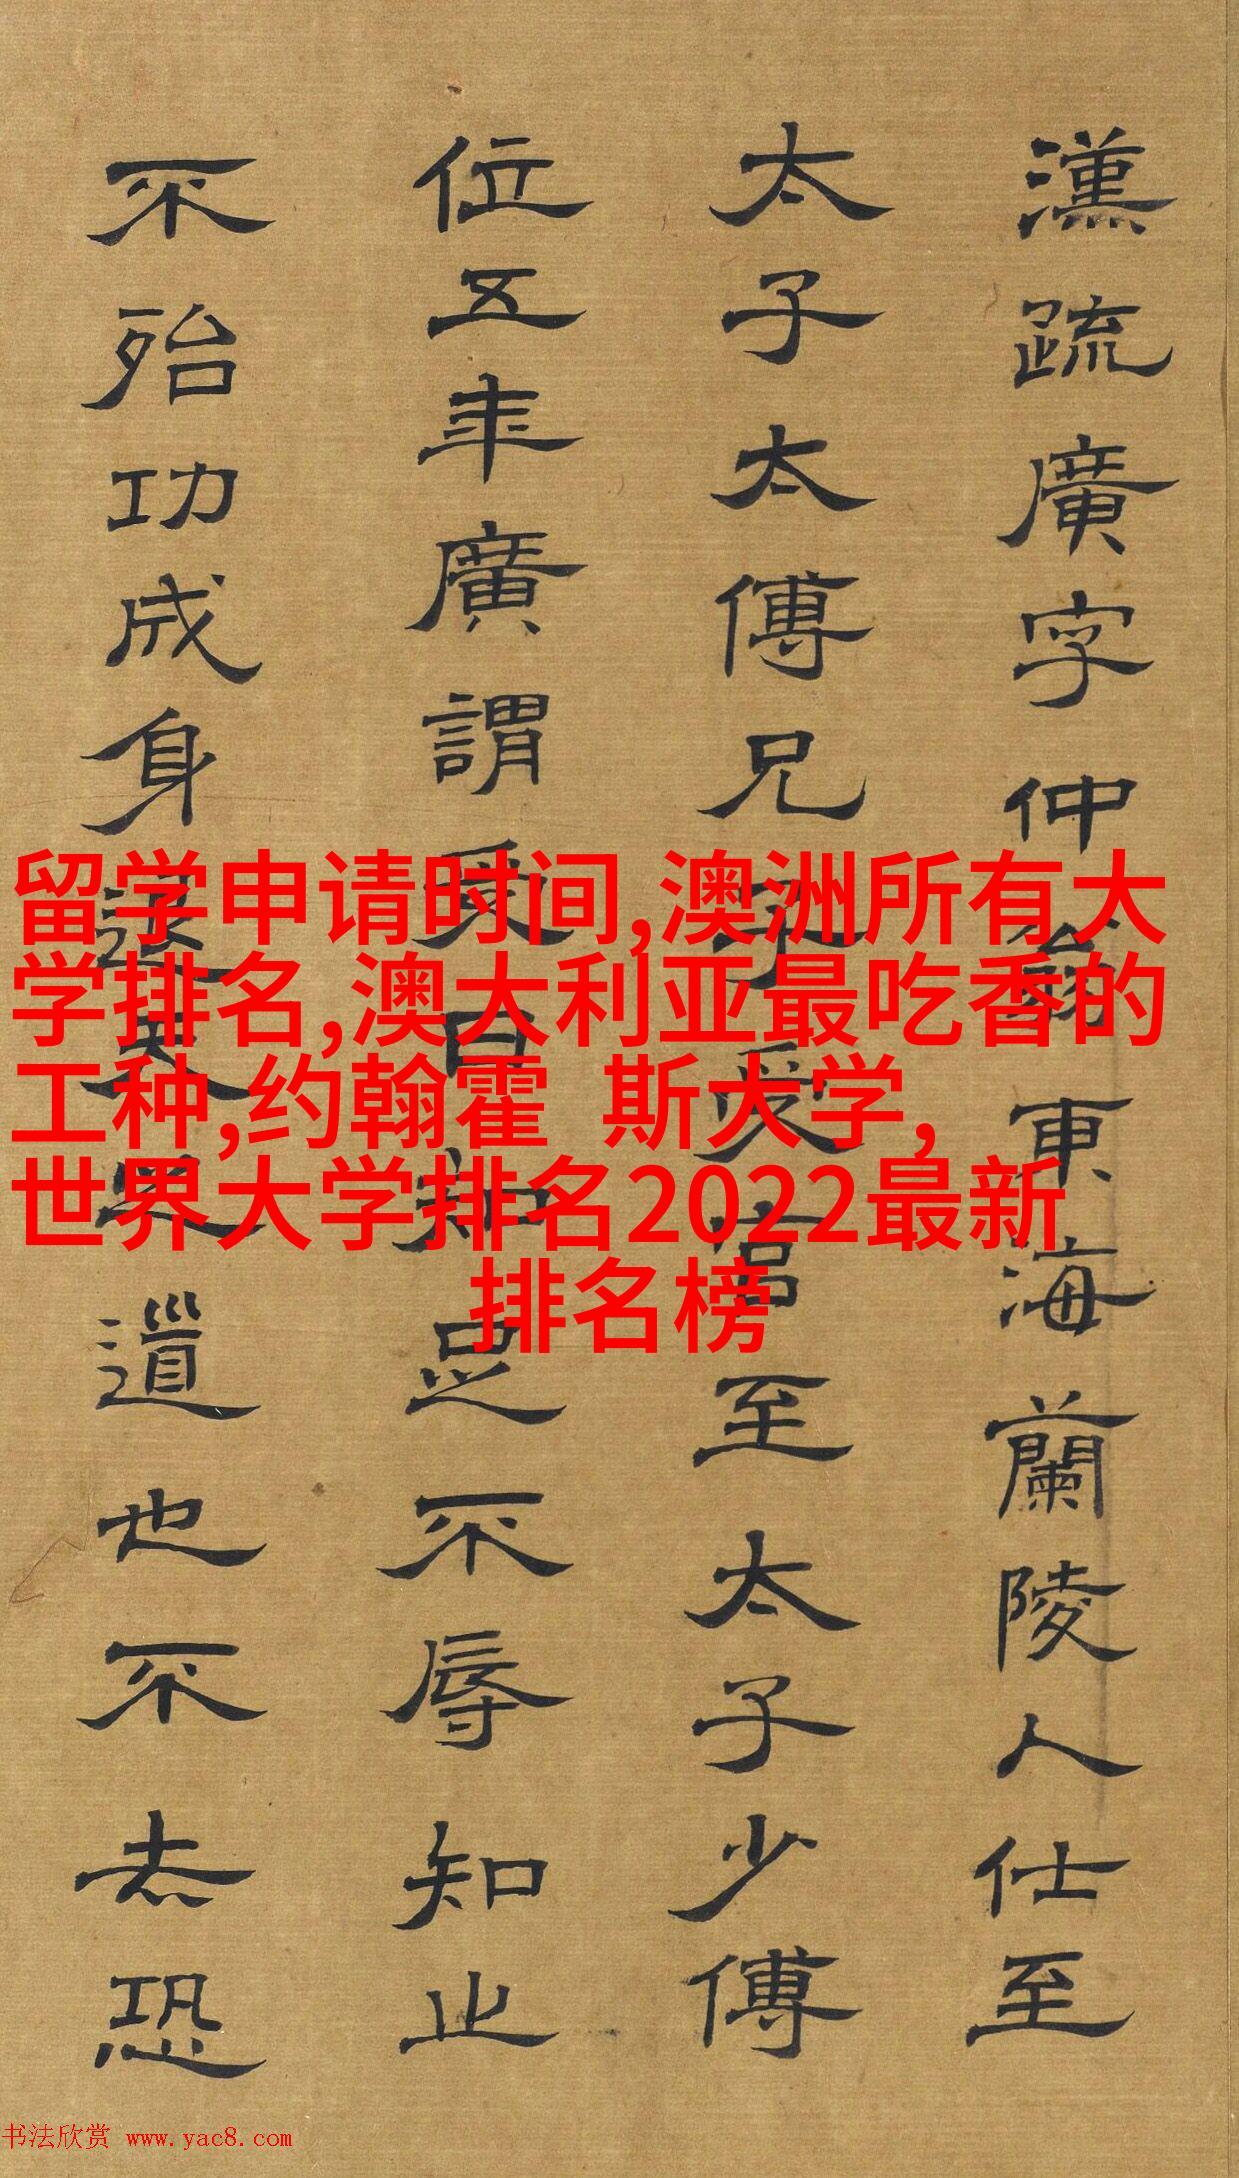 漢疏廣字仲翁東海蘭陵人仕至
太子太傅兄子受官至太子少傅
位五年廣謂受曰知足不辱知止
不殆功成身退天之道也不去恐
留学申请时间,澳洲所有大
学排名,澳大利亚最吃香的
工种,约翰霍 斯大学,
世界大学排名2022最新
排名榜
书法欣赏 www.yac8.com